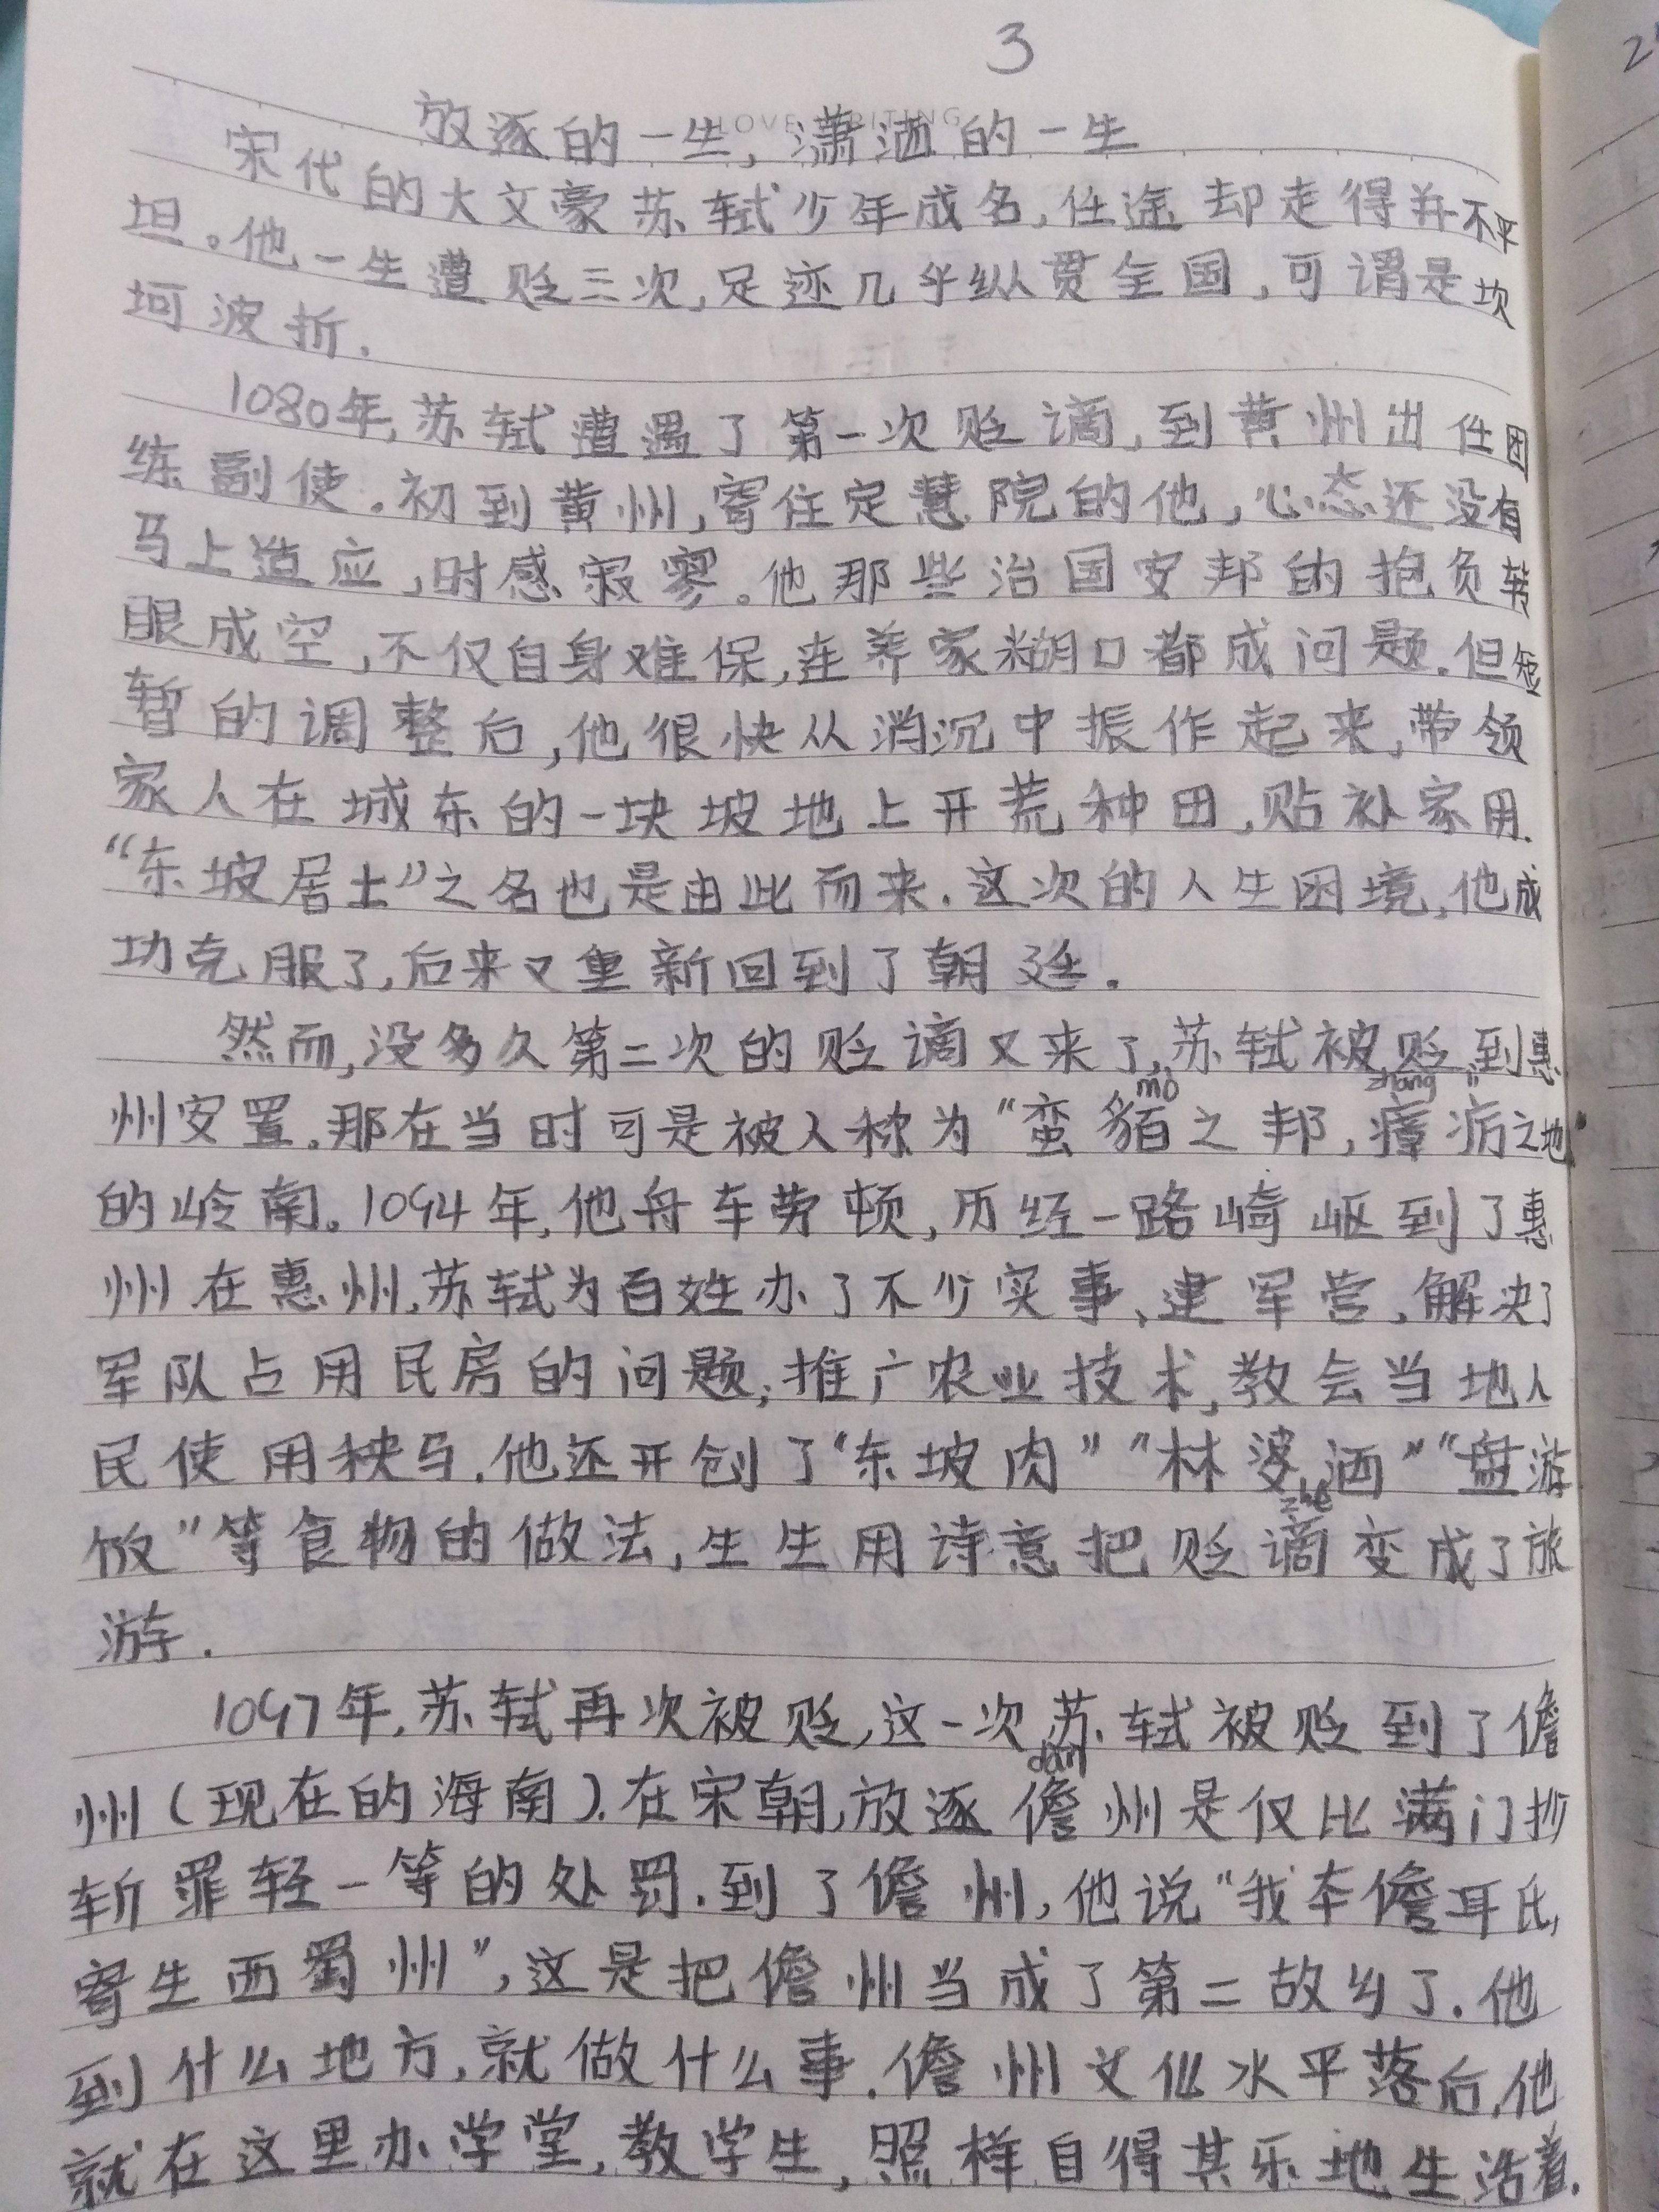 3
LOVE WRITING
放逐的一生,潇洒的一生
宋代的大文豪苏轼少年成名,仕途却走得并不平
坦。他一生遭贬三次,足迹几乎纵贯全国,可谓是坎
坷波折.
1080年,苏轼遭遇了第一次贬谪,到黄州出任团
练副使.初到黄州,寄住定慧院的他,心态还没有
马上适应,时感寂寥。他那些治国安邦的抱负转
眼成空,不仅自身难保,连养家糊口都成问题.但短
暂的调整后,他很快从消沉中振作起来,带领
家人在城东的一块坡地上开荒种田,贴补家用.
“东坡居士”之名也是由此而来.这次的人生困境,他成
功克服了,后来又重新回到了朝廷.
然而,没多久第二次的贬谪又来了,苏轼被贬到惠
mò zhàng
州安置.那在当时可是被人称为“蛮貊之邦,瘴疠之地”
的岭南。1094年,他舟车劳顿,历经一路崎岖到了惠
州.在惠州,苏轼为百姓办了不少实事、建军营,解决了
军队占用民房的问题;推广农业技术,教会当地人
民使用秧马.他还开创了“东坡肉”“林婆酒”“盘游
zhé
饭”等食物的做法,生生用诗意把贬谪变成了旅
游.
1097年,苏轼再次被贬,这一次苏轼被贬到了儋
dān
州(现在的海南).在宋朝,放逐儋州是仅比满门抄
斩罪轻一等的处罚.到了儋州,他说“我本儋耳氏,
寄生西蜀州”,这是把儋州当成了第二故乡了.他
到什么地方,就做什么事.儋州文化水平落后,他
就在这里办学堂,教学生,照样自得其乐地生活着.